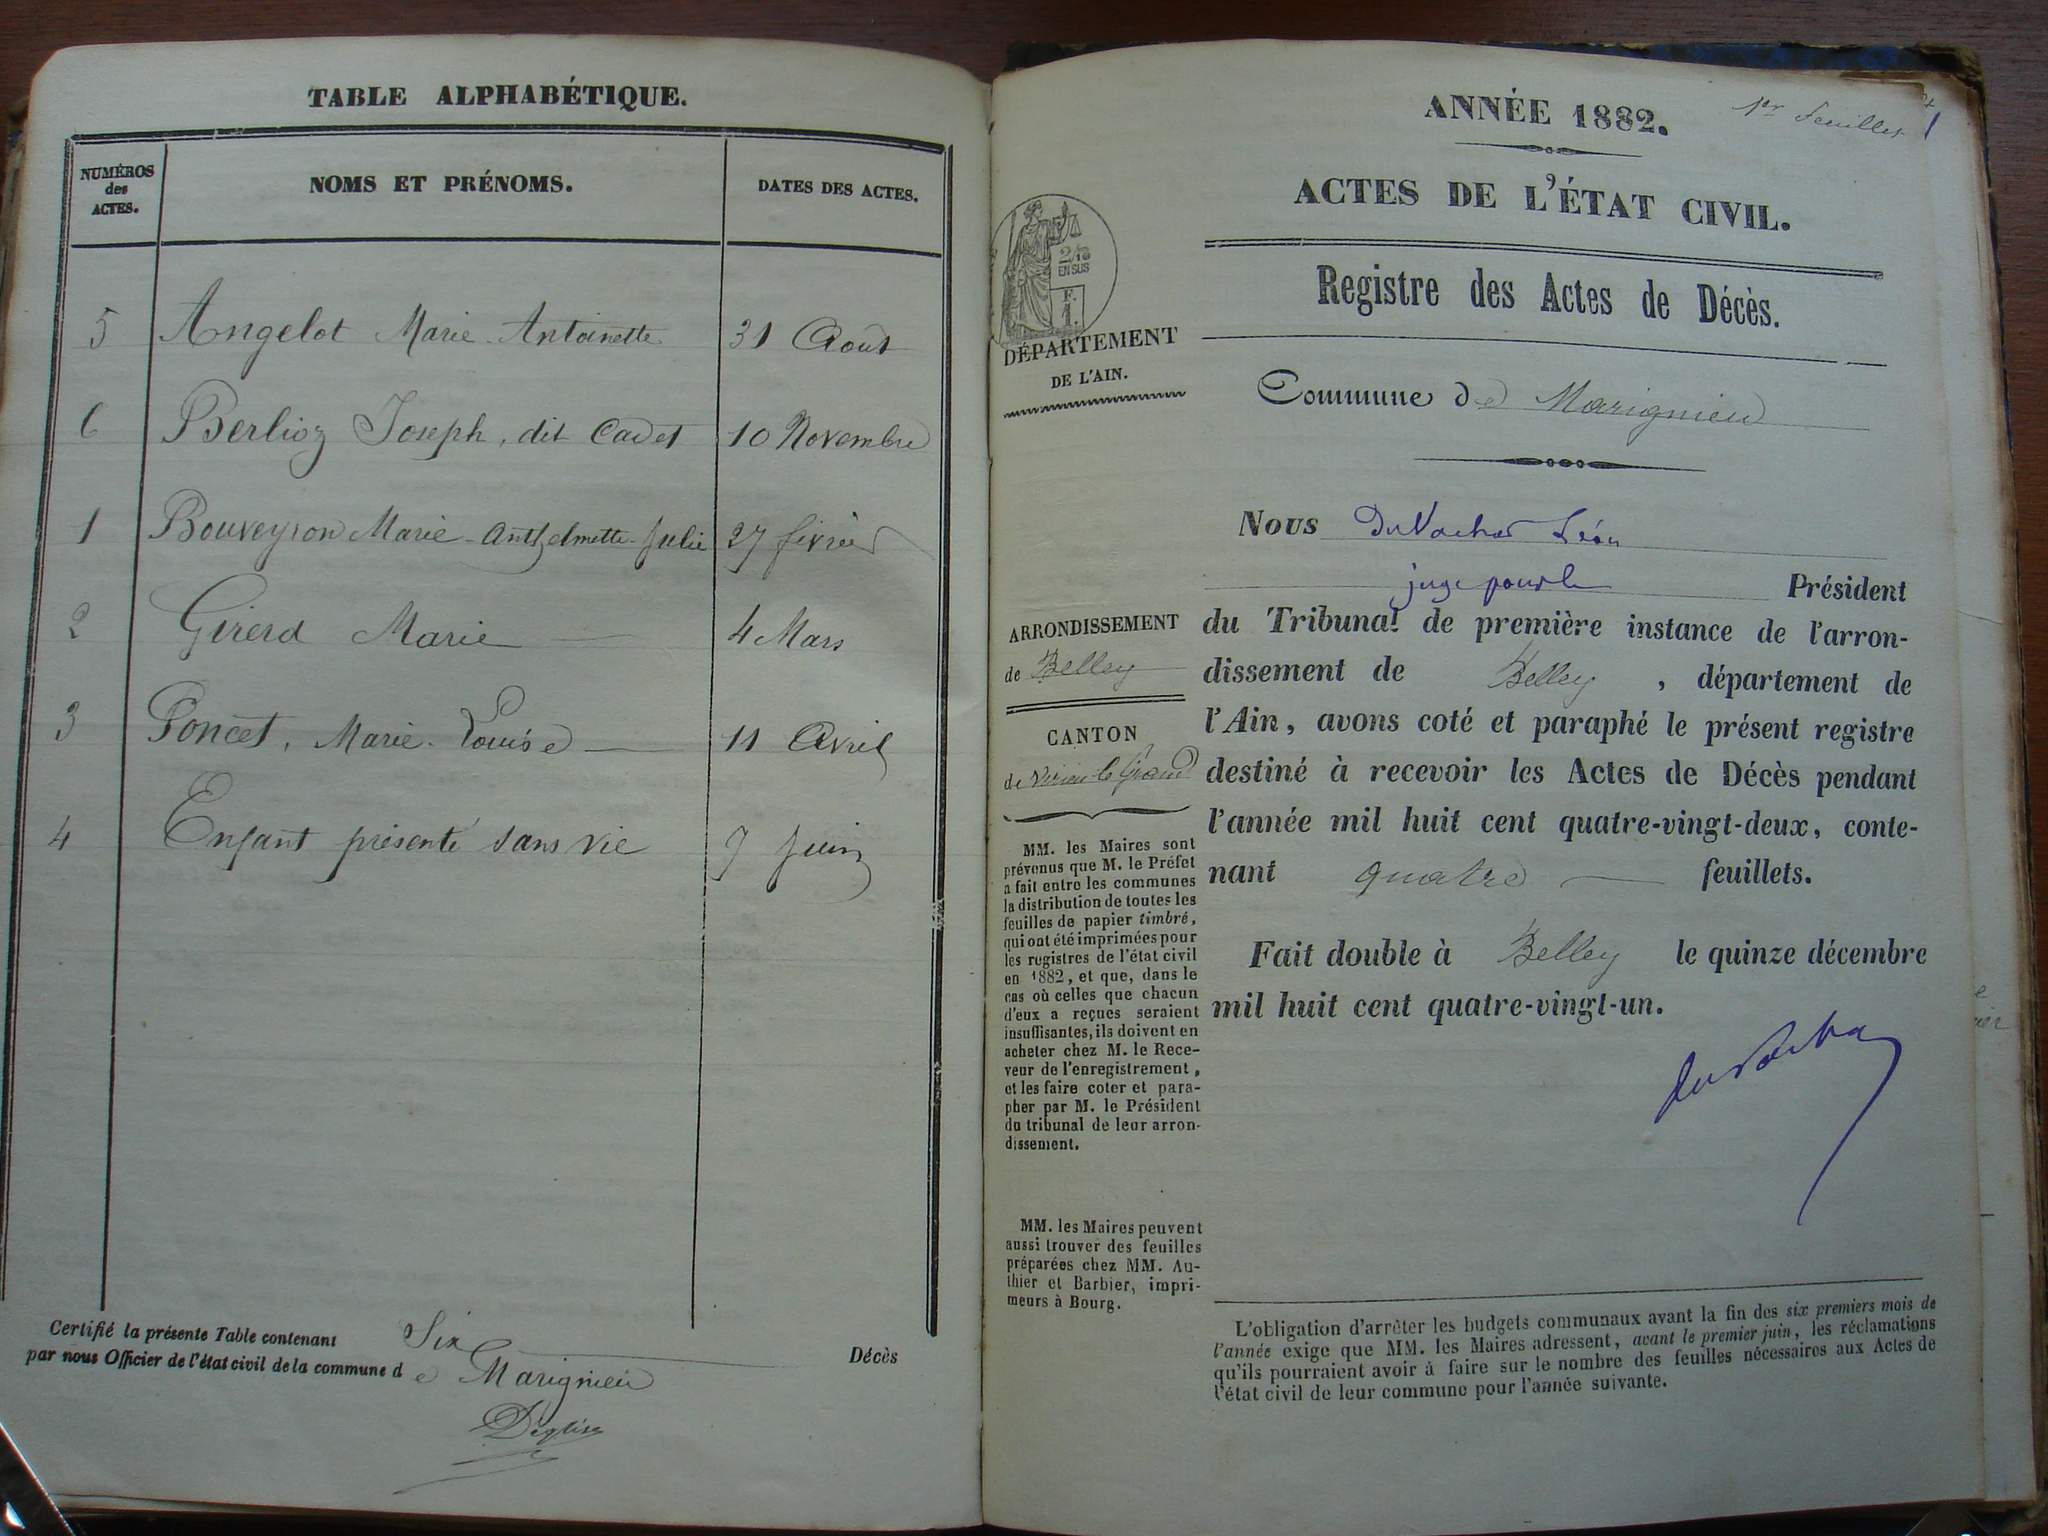 TABLE ALPHABÉTIQUE.
NUMÉROS
des
ACTES.
NOMS ET PRÉNOMS.
DATES DES ACTES.
5 Angelot Marie-Antoinette 31 Août
6 Berlioz Joseph, dit Cadet 10 Novembre
1 Bouveyron Marie-Anthelmette-Julie 27 février
2 Girerd Marie 4 Mars
3 Poncet, Marie-Louise 11 Avril
4 Enfant présenté sans vie 9 Juin
Certifié la présente Table contenant Six Décès
par nous Officier de l'état civil de la commune de Marignieu
Déglise
1er feuillet 1
ANNÉE 1882.
ACTES DE L'ÉTAT CIVIL.
Registre des Actes de Décès.
2/10
EN SUS
F.
1.
DÉPARTEMENT
DE L'AIN.
Commune de Marignieu
ARRONDISSEMENT
de Belley
CANTON
de Virieu-le-Grand
MM. les Maires sont
prévenus que M. le Préfet
a fait entre les communes
la distribution de toutes les
feuilles de papier timbré,
qui ont été imprimées pour
les registres de l'état civil
en 1882, et que, dans le
cas où celles que chacun
d'eux a reçues seraient
insuffisantes, ils doivent en
acheter chez M. le Rece-
veur de l'enregistrement,
et les faire coter et para-
pher par M. le Président
du tribunal de leur arron-
dissement.
MM. les Maires peuvent
aussi trouver des feuilles
préparées chez MM. Au-
thier et Barbier, impri-
meurs à Bourg.
Nous Léon
juge pour le Président
du Tribunal de première instance de l'arron-
dissement de Belley, département de
l'Ain, avons coté et paraphé le présent registre
destiné à recevoir les Actes de Décès pendant
l'année mil huit cent quatre-vingt-deux, conte-
nant quatre feuillets.
Fait double à Belley le quinze décembre
mil huit cent quatre-vingt-un.
L'obligation d'arrêter les budgets communaux avant la fin des six premiers mois de
l'année exige que MM. les Maires adressent, avant le premier juin, les réclamations
qu'ils pourraient avoir à faire sur le nombre des feuilles nécessaires aux Actes de
l'état civil de leur commune pour l'année suivante.